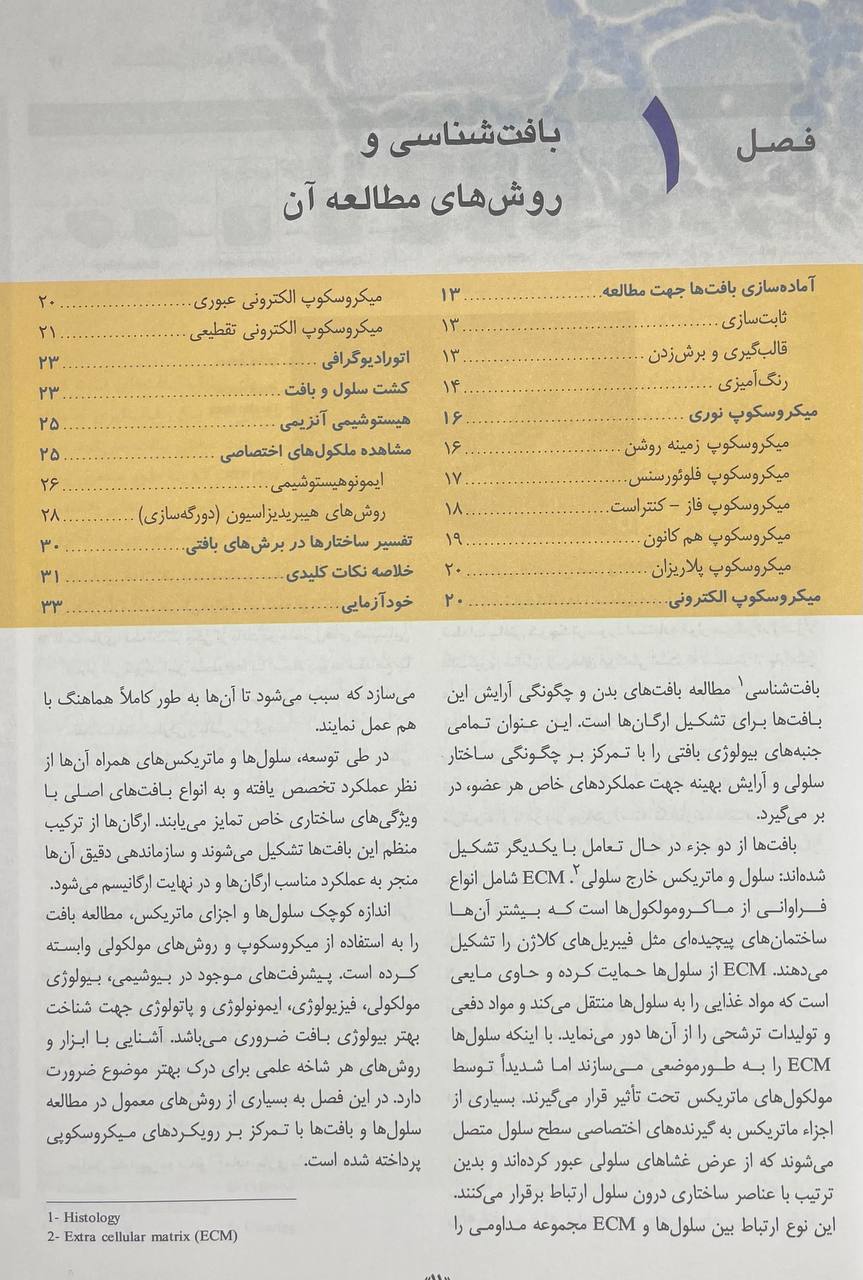 فصل ۱
بافت‌شناسی و
روش‌های مطالعه آن
آماده‌سازی بافت‌ها جهت مطالعه ۱۳
ثابت‌سازی ۱۳
قالب‌گیری و برش‌زدن ۱۳
رنگ‌آمیزی ۱۴
میکروسکوپ نوری ۱۶
میکروسکوپ زمینه روشن ۱۶
میکروسکوپ فلوئورسنس ۱۷
میکروسکوپ فاز - کنتراست ۱۸
میکروسکوپ هم کانون ۱۹
میکروسکوپ پلاریزان ۲۰
میکروسکوپ الکترونی ۲۰
میکروسکوپ الکترونی عبوری ۲۰
میکروسکوپ الکترونی تقطیعی ۲۱
اتورادیوگرافی ۲۳
کشت سلول و بافت ۲۳
هیستوشیمی آنزیمی ۲۵
مشاهده ملکول‌های اختصاصی ۲۵
ایمونوهیستوشیمی ۲۶
روش‌های هیبریدیزاسیون (دورگه‌سازی) ۲۸
تفسیر ساختارها در برش‌های بافتی ۳۰
خلاصه نکات کلیدی ۳۱
خودآزمایی ۳۳
بافت‌شناسی۱ مطالعه بافت‌های بدن و چگونگی آرایش این
بافت‌ها برای تشکیل ارگان‌ها است. این عنوان تمامی
جنبه‌های بیولوژی بافتی را با تمرکز بر چگونگی ساختار
سلولی و آرایش بهینه جهت عملکردهای خاص هر عضو، در
بر می‌گیرد.
بافت‌ها از دو جزء در حال تعامل با یکدیگر تشکیل
شده‌اند: سلول و ماتریکس خارج سلولی۲. ECM شامل انواع
فراوانی از ماکرومولکول‌ها است که بیشتر آن‌ها
ساختمان‌های پیچیده‌ای مثل فیبریل‌های کلاژن را تشکیل
می‌دهند. ECM از سلول‌ها حمایت کرده و حاوی مایعی
است که مواد غذایی را به سلول‌ها منتقل می‌کند و مواد دفعی
و تولیدات ترشحی را از آن‌ها دور می‌نماید. با اینکه سلول‌ها
ECM را به طورموضعی می‌سازند اما شدیداً توسط
مولکول‌های ماتریکس تحت تأثیر قرار می‌گیرند. بسیاری از
اجزاء ماتریکس به گیرنده‌های اختصاصی سطح سلول متصل
می‌شوند که از عرض غشاهای سلولی عبور کرده‌اند و بدین
ترتیب با عناصر ساختاری درون سلول ارتباط برقرار می‌کنند.
این نوع ارتباط بین سلول‌ها و ECM مجموعه مداومی را
می‌سازد که سبب می‌شود تا آن‌ها به طور کاملاً هماهنگ با
هم عمل نمایند.
در طی توسعه، سلول‌ها و ماتریکس‌های همراه آن‌ها از
نظر عملکرد تخصص یافته و به انواع بافت‌های اصلی با
ویژگی‌های ساختاری خاص تمایز می‌یابند. ارگان‌ها از ترکیب
منظم این بافت‌ها تشکیل می‌شوند و سازماندهی دقیق آن‌ها
منجر به عملکرد مناسب ارگان‌ها و در نهایت ارگانیسم می‌شود.
اندازه کوچک سلول‌ها و اجزای ماتریکس، مطالعه بافت
را به استفاده از میکروسکوپ و روش‌های مولکولی وابسته
کرده است. پیشرفت‌های موجود در بیوشیمی، بیولوژی
مولکولی، فیزیولوژی، ایمونولوژی و پاتولوژی جهت شناخت
بهتر بیولوژی بافت ضروری می‌باشد. آشنایی با ابزار و
روش‌های هر شاخه علمی برای درک بهتر موضوع ضرورت
دارد. در این فصل به بسیاری از روش‌های معمول در مطالعه
سلول‌ها و بافت‌ها با تمرکز بر رویکردهای میکروسکوپی
پرداخته شده است.
1- Histology
2- Extra cellular matrix (ECM)